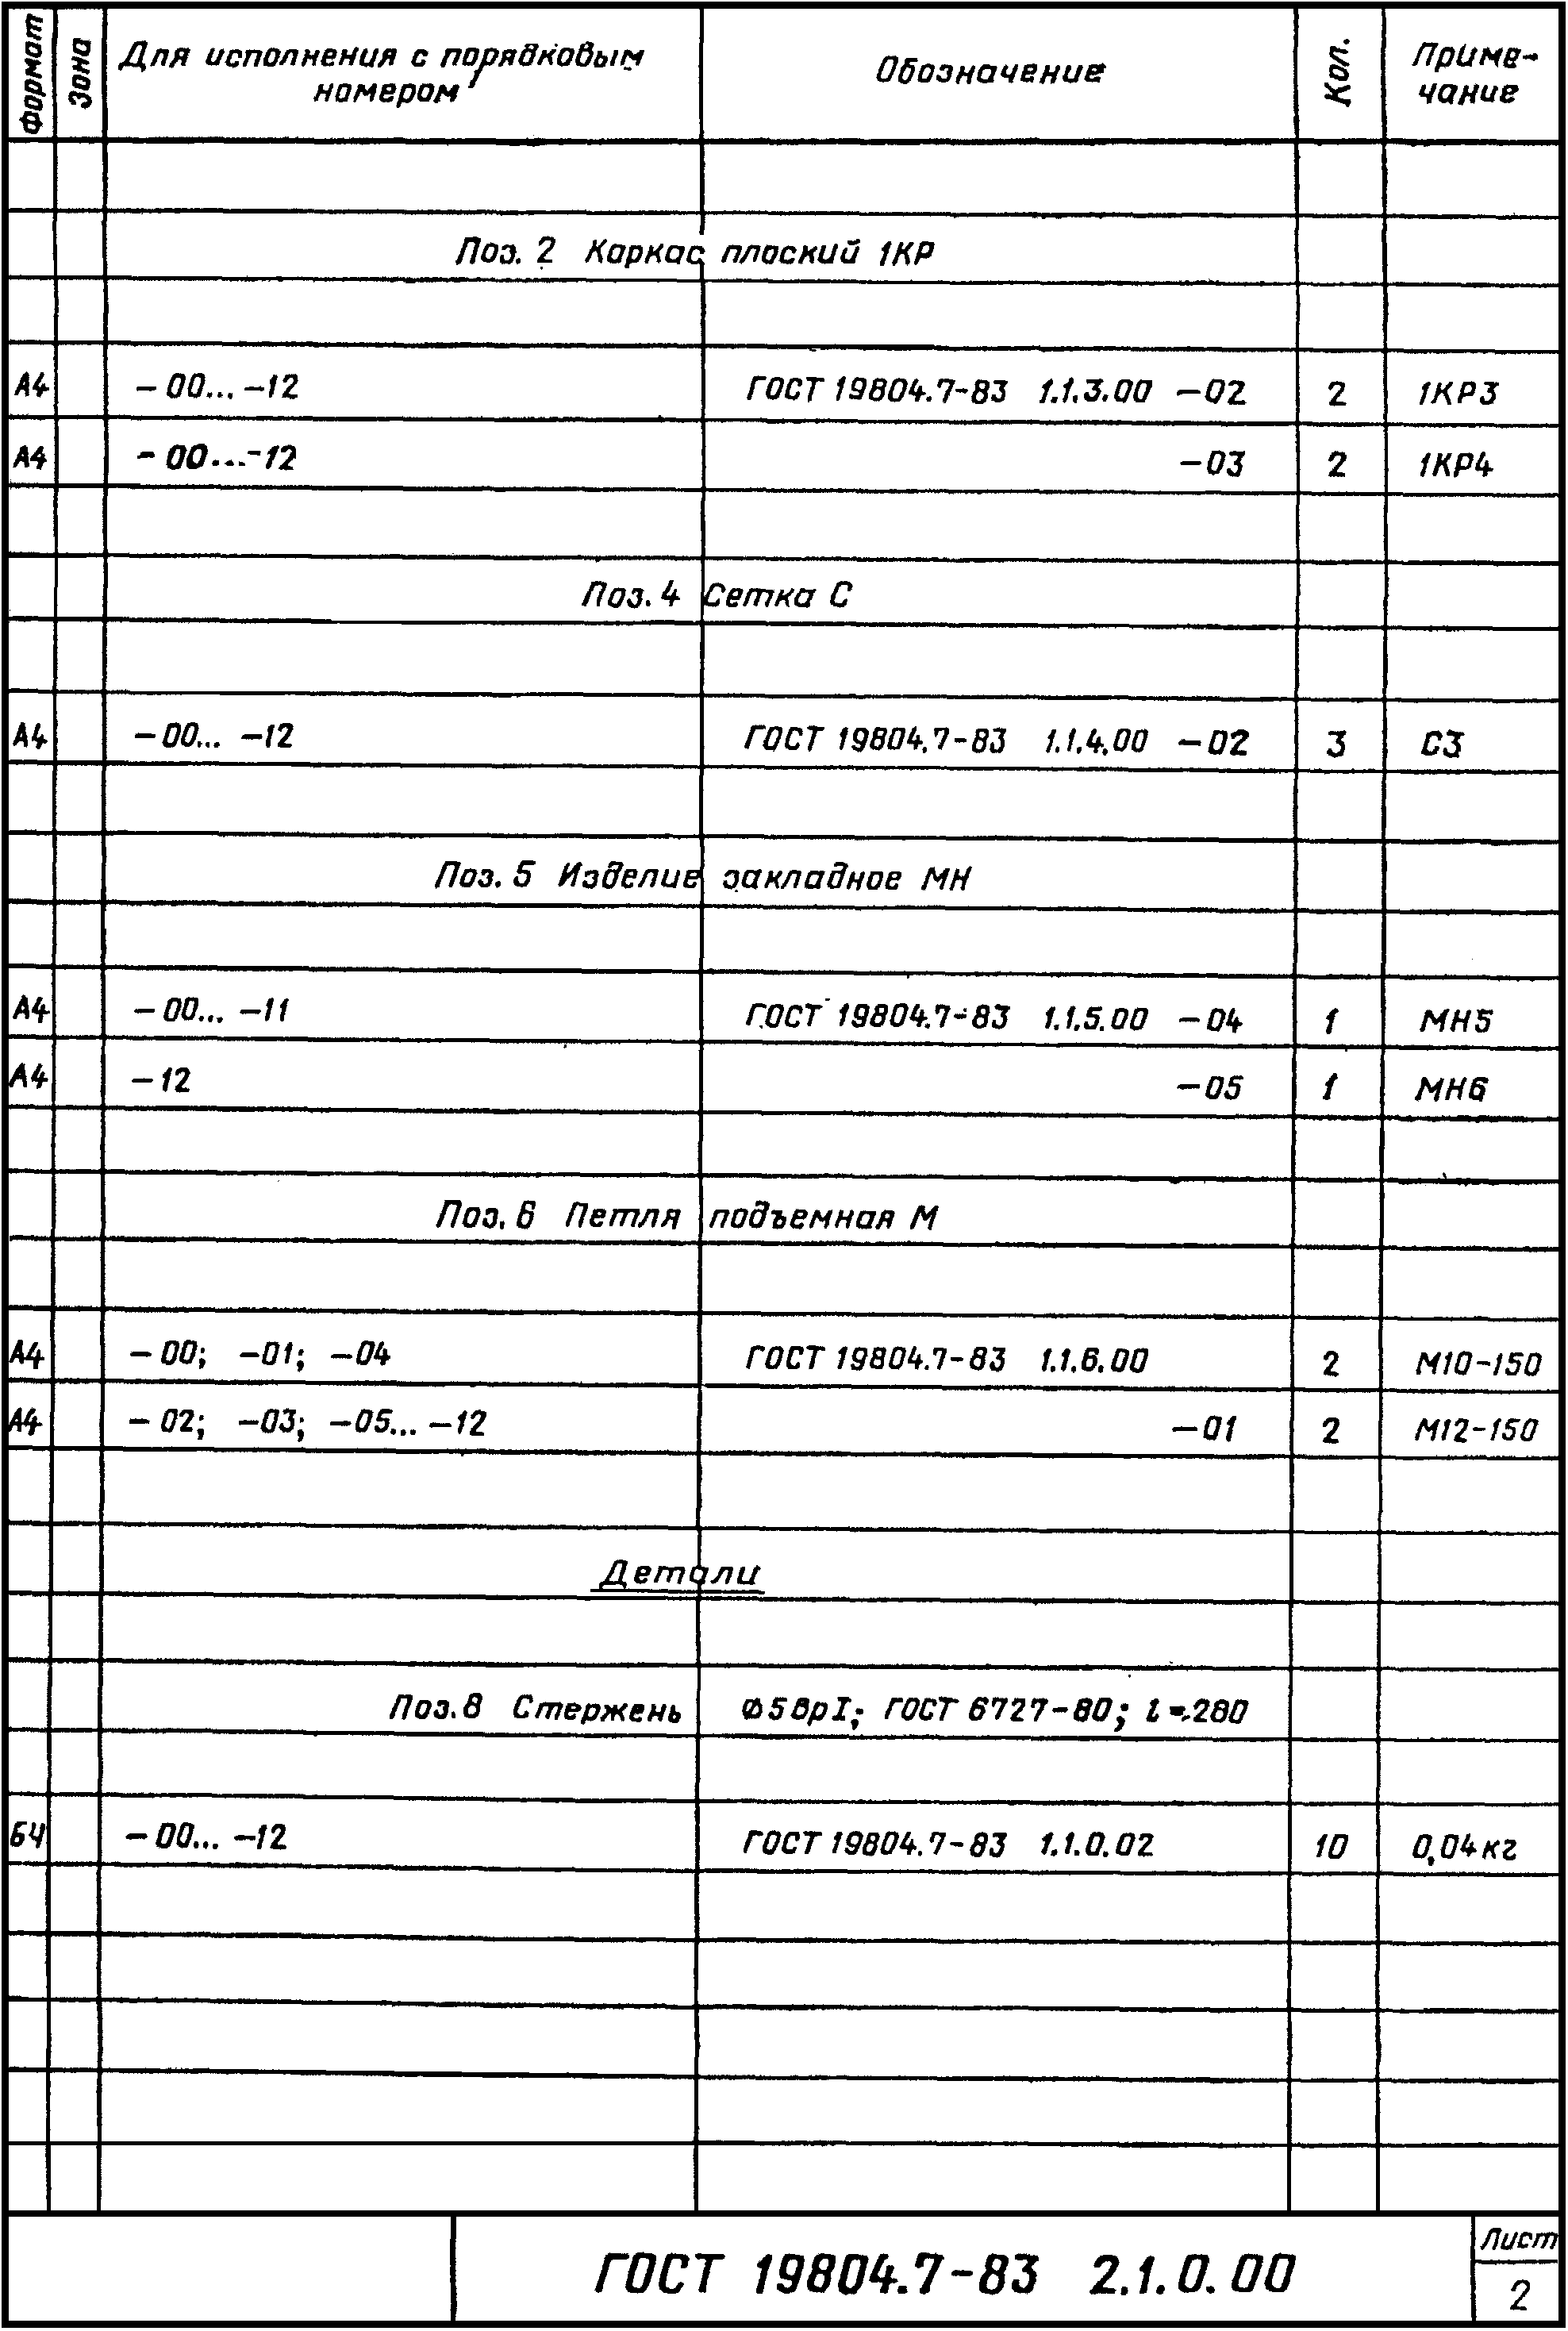 Формат
Зона
Для исполнения с порядковым
номером
Обозначение
Кол.
Приме-
чание
Поз. 2 Каркас плоский 1КР
А4 -00... -12 ГОСТ 19804.7-83 1.1.3.00 -02 2 1КР3
А4 -00...-12 -03 2 1КР4
Поз. 4 Сетка С
А4 -00... -12 ГОСТ 19804.7-83 1.1.4.00 -02 3 С3
Поз. 5 Изделие закладное МН
А4 -00... -11 ГОСТ 19804.7-83 1.1.5.00 -04 1 МН5
А4 -12 -05 1 МН6
Поз. 6 Петля подъемная М
А4 -00; -01; -04 ГОСТ 19804.7-83 1.1.6.00 2 М10-150
А4 -02; -03; -05... -12 -01 2 М12-150
Детали
Поз. 8 Стержень Ф5ВрI; ГОСТ 6727-80; l=280
БЧ -00... -12 ГОСТ 19804.7-83 1.1.0.02 10 0,04кг
ГОСТ 19804.7-83 2.1.0.00
Лист
2